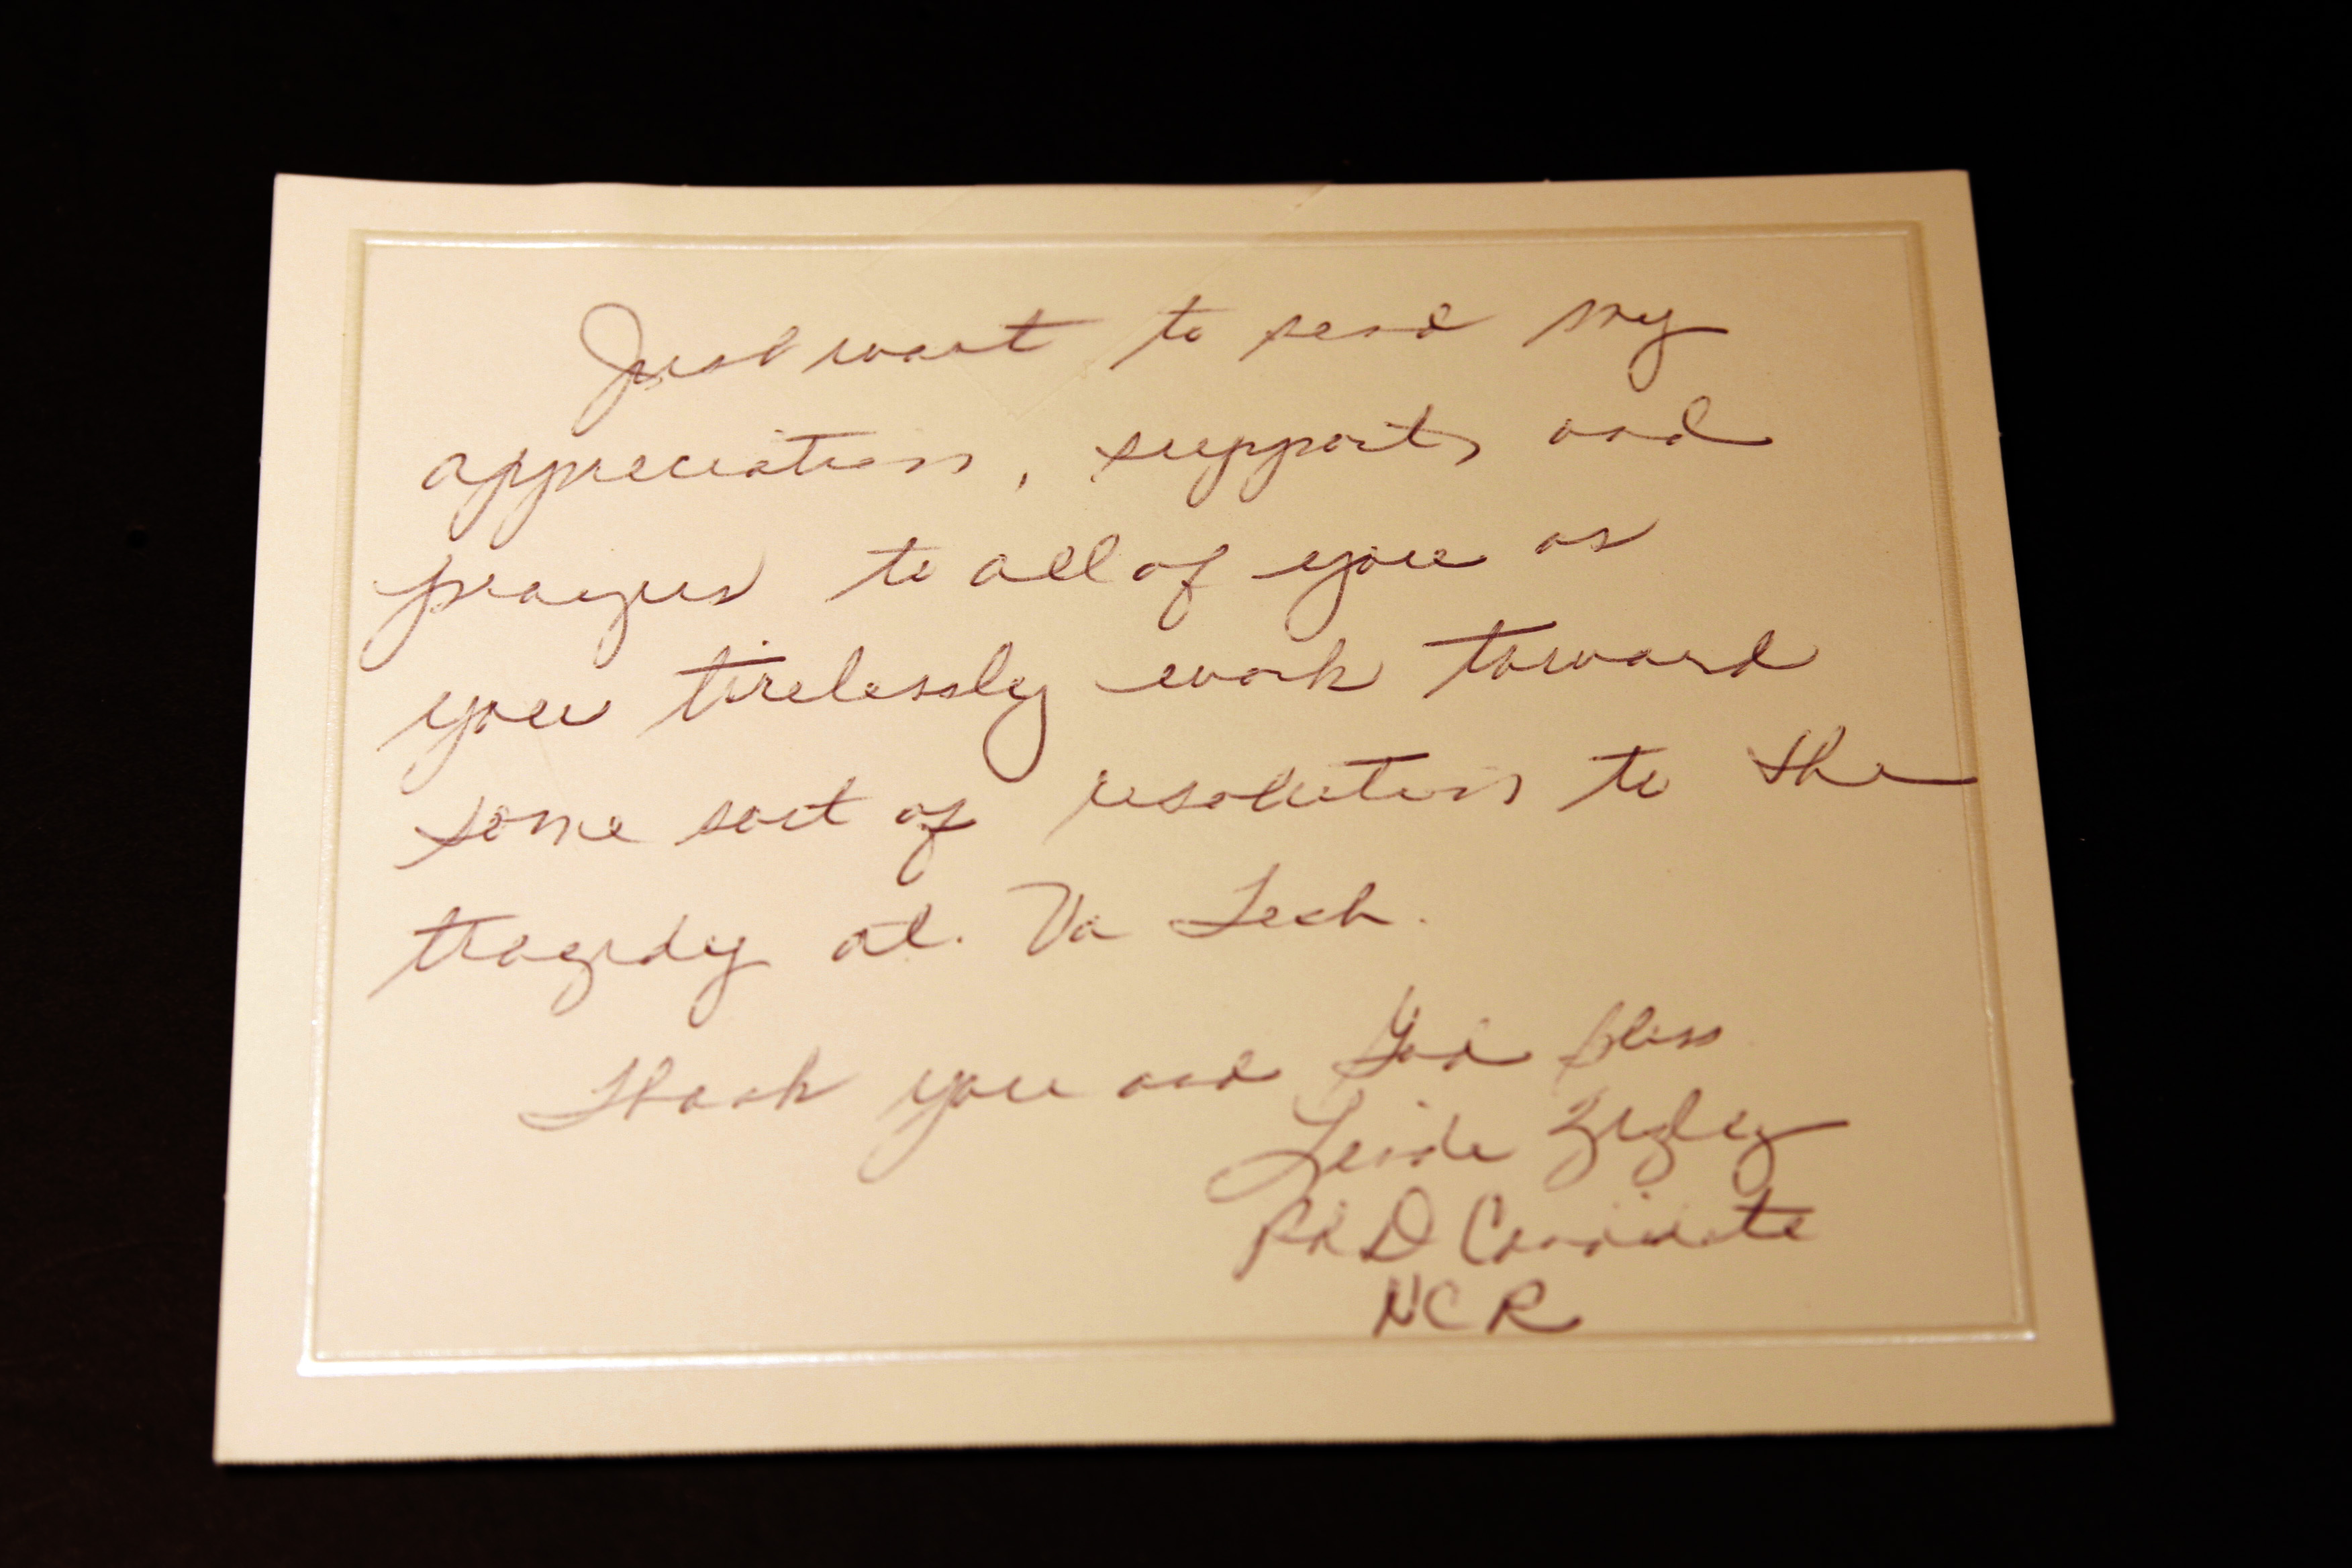 Just want to send my
appreciation, support, and
prayers to all of you as
you tirelessly work toward
some sort of resolution to the
tragedy at. Va Tech.
Thank you and God bless
PhD Candidate
NCR